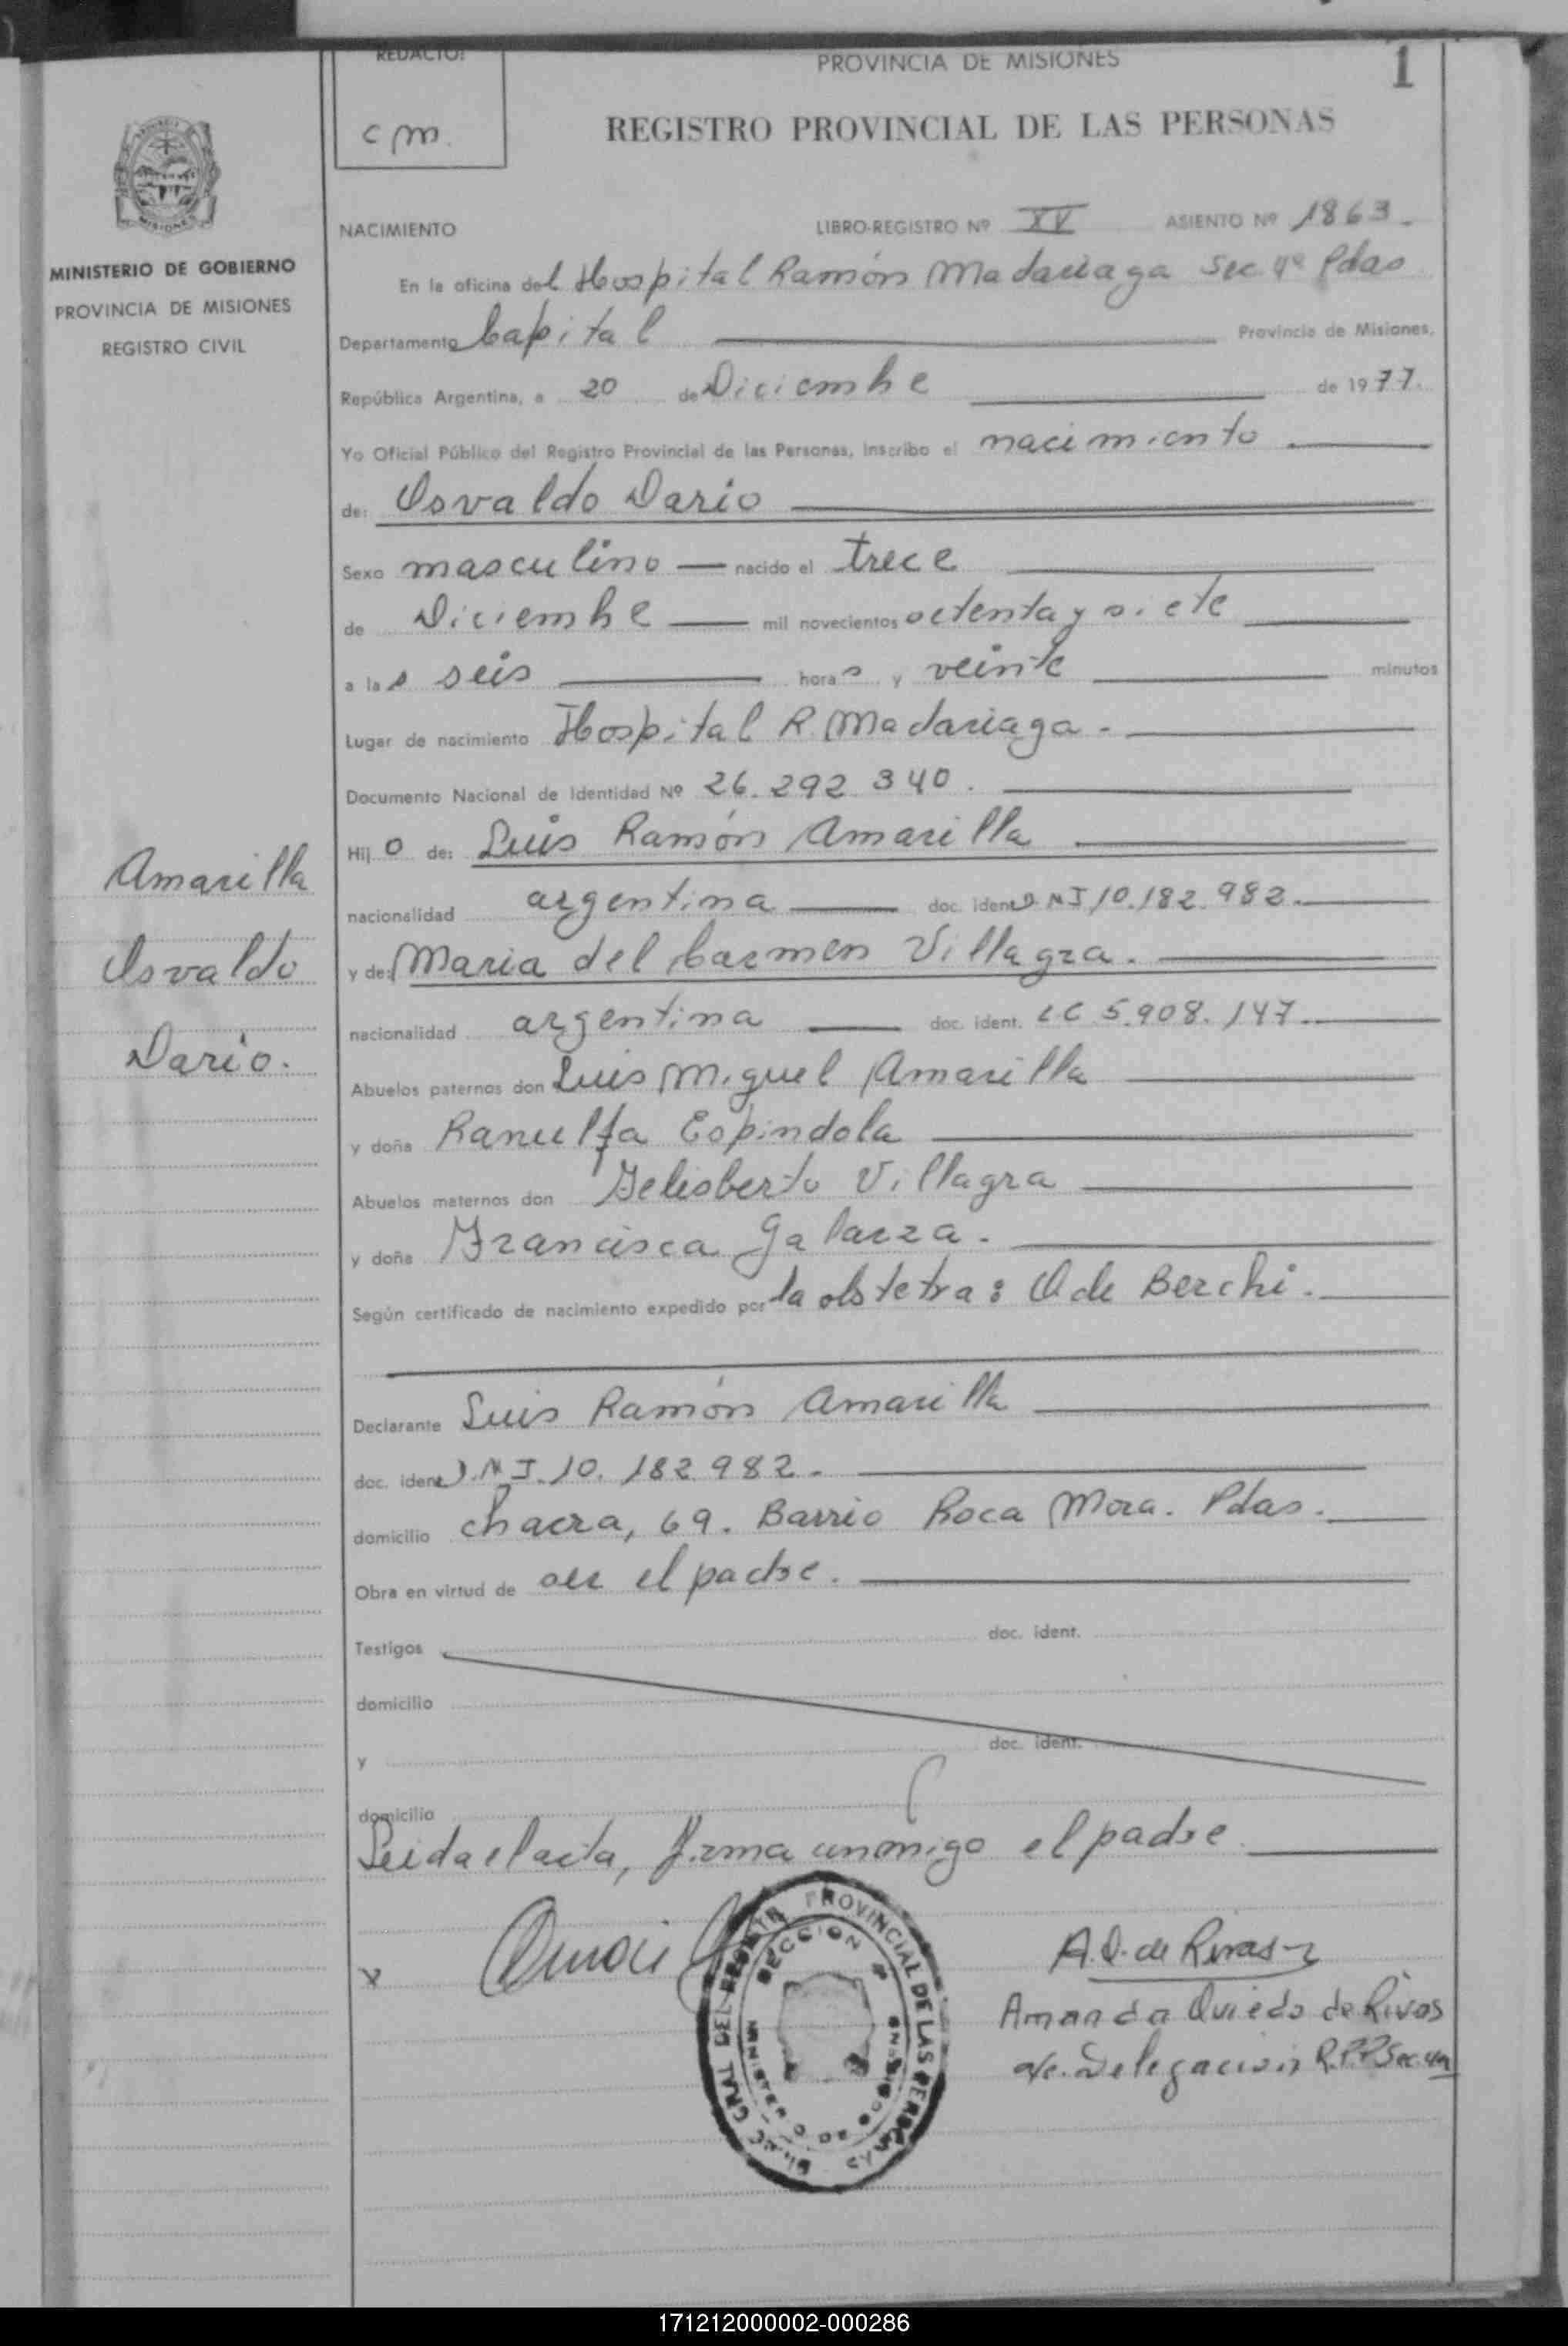 REDACTO:
c m.
PROVINCIA DE MISIONES
1
REGISTRO PROVINCIAL DE LAS PERSONAS
MISIONES
MINISTERIO DE GOBIERNO
PROVINCIA DE MISIONES
REGISTRO CIVIL
Amarilla
Osvaldo
Dario.
NACIMIENTO LIBRO-REGISTRO Nº XV ASIENTO Nº 1863.
En la oficina del Hospital Ramón Madariaga Sec 4ª Pdas
Departamento Capital Provincia de Misiones,
República Argentina, a 20 de Diciembre de 1977.
Yo Oficial Público del Registro Provincial de las Personas, inscribo el nacimiento
de: Osvaldo Dario
Sexo masculino nacido el trece
de Diciembre mil novecientos setenta y siete
a las seis horas y veinte minutos
Lugar de nacimiento Hospital R. Madariaga.
Documento Nacional de Identidad Nº 26.292.340.
Hijo de: Luis Ramón Amarilla
nacionalidad argentina doc. ident. D.N.I 10.182.982.
y de: Maria del Carmen Villagra.
nacionalidad argentina doc. ident. LC 5.908.147.
Abuelos paternos don Luis Miguel Amarilla
y doña Ranulfa Espindola
Abuelos maternos don Felisberto Villagra
y doña Francisca Galarza.
Según certificado de nacimiento expedido por la obstetra: O de Berchi.
Declarante Luis Ramón Amarilla
doc. ident. D.N.I. 10.182 982.
domicilio chacra, 69. Barrio Roca Mora. Pdas.
Obra en virtud de ser el padre.
Testigos doc. ident.
domicilio
y doc. ident.
domicilio
Leida el acta, firma conmigo el padre.
x
DIREC GRAL DEL REGISTRO PROVINCIAL DE LAS PERSONAS
SECCION 4
MINISTERIO DE GOBIERNO
A.O. de Rivas
Amanda Oviedo de Rivas
a/c. Delegación R.P.P. Sec. 4ª
171212000002-000286